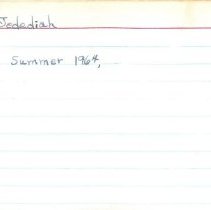 Jedediah
Summer 1964,